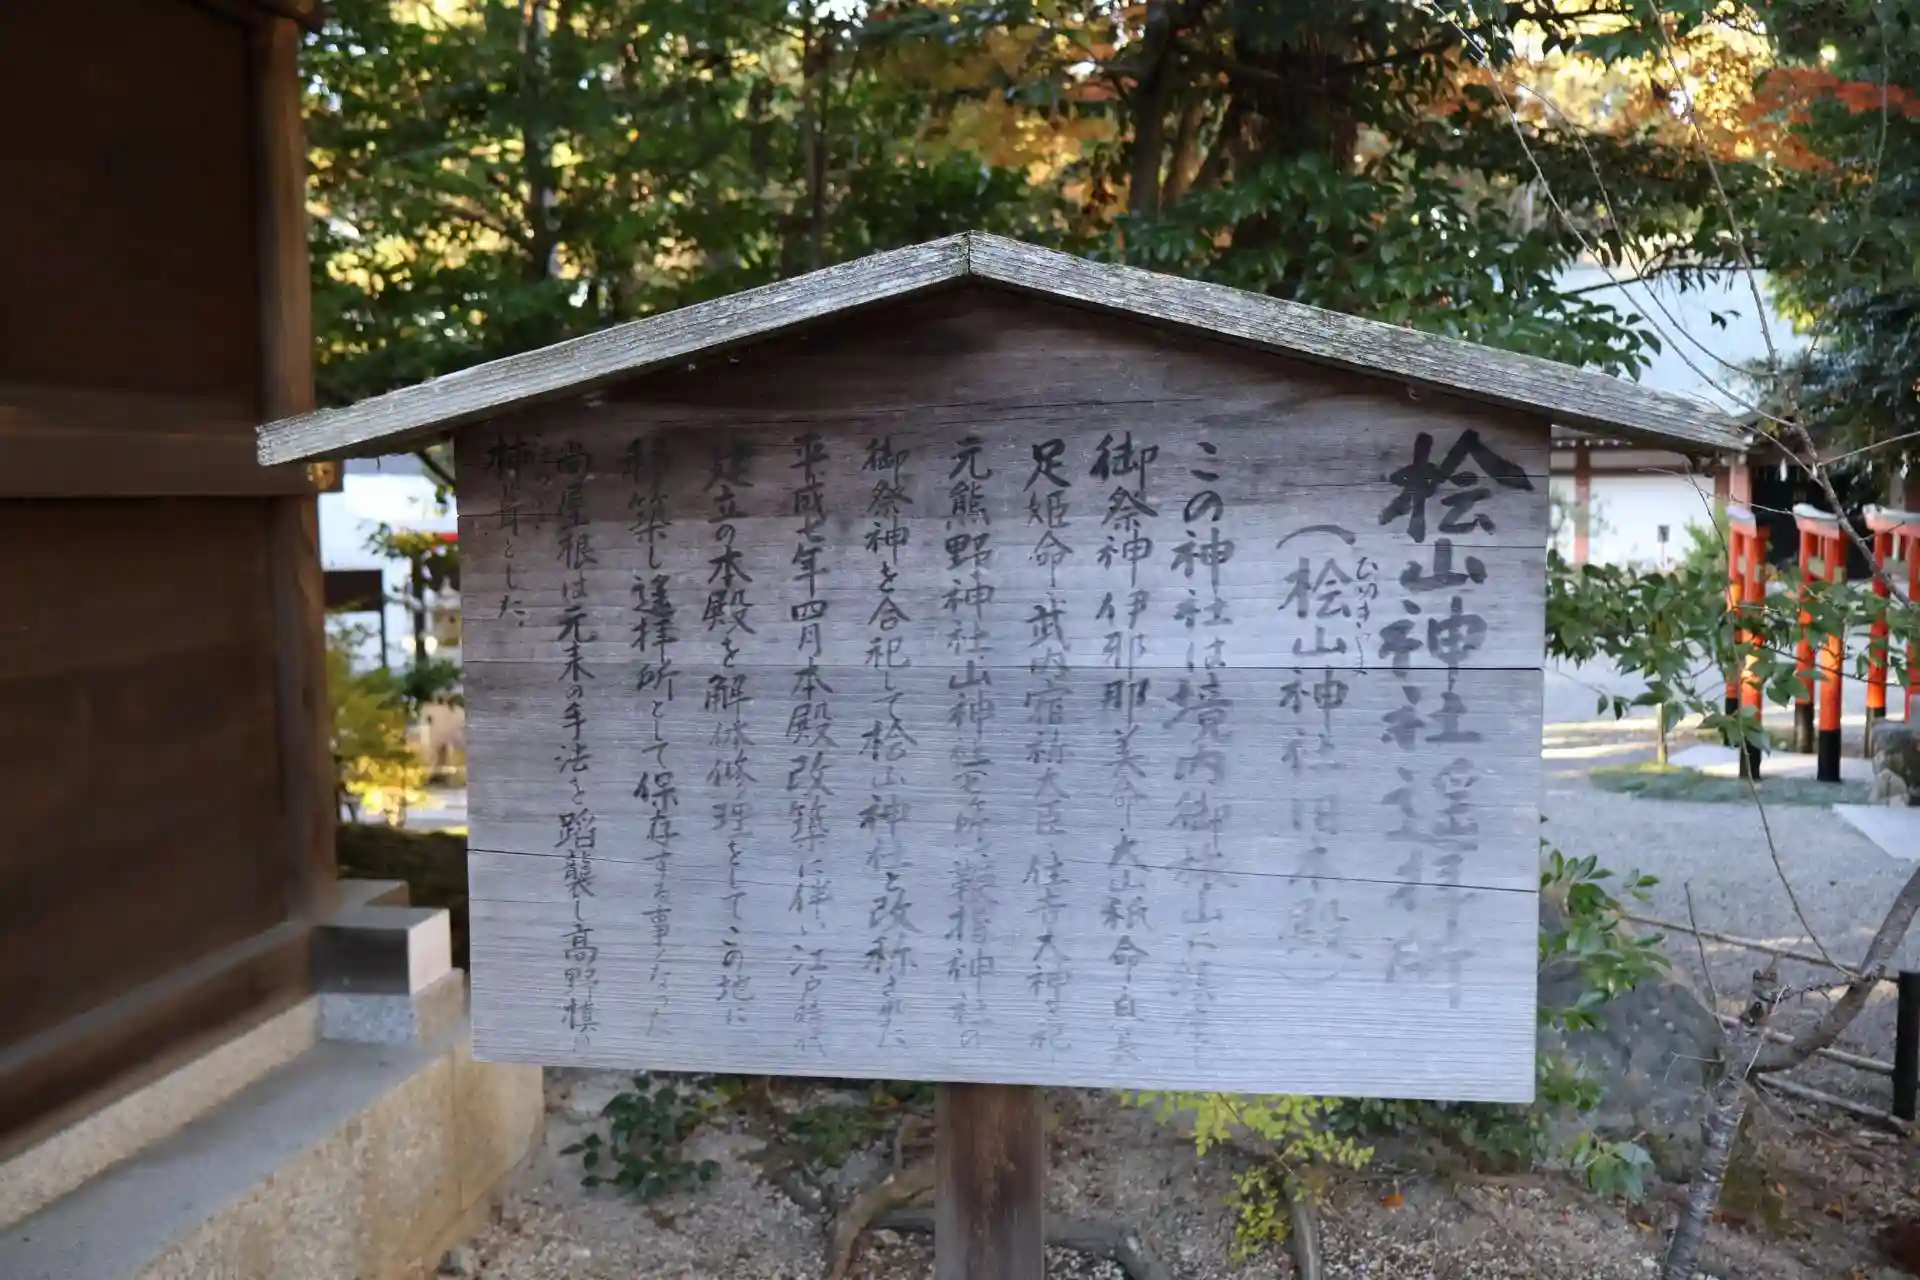 桧山神社遥拝所
（桧山神社旧本殿）
ひのきやま
この神社は境内御旅山に鎮座し
御祭神伊那那美命・大山祇命・息長
足姫命・武内宿祢大臣・住吉大神を祀
元熊野神社山神社 鞍指神社の
御祭神を合祀して桧山神社と改称された
平成七年四月本殿改築に伴い江戸時代
建立の本殿を解体修理をしてこの地に
移築し遥拝所として保存する事となった
尚屋根は元来の手法を踏襲し高野槙の
柿葺とした。